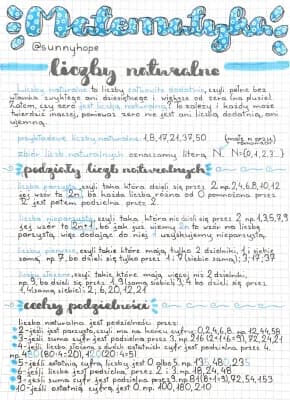 Matematyka
@sunnyhope
liczby naturalne
Liczby naturalne to liczby całkowite dodatnie, czyli pełne bez
ułamka zwykłego ani dziesiętnego i większe od zera (na plusie).
Zatem, czy zero jest liczbą naturalną? To zależy i każdy może
twierdzić inaczej, ponieważ zero nie jest ani liczbą dodatnią, ani
ujemną.
przykładowe liczby naturalne: 1,8,17,21,37,50
zbiór liczb naturalnych oznaczamy literą N. N={0,1,2,3...}
podziały liczb naturalnych
liczba parzysta, czyli taka która dzieli się przez 2 np. 2,4,6,8,10,12
jej wzór to 2n, bo każda liczba różna od 0 pomnożona przez
2 jest potem podzielna przez 2.
liczba nieparzysta, czyli taka, która nie dzieli się przez 2 np. 1,3,5,7,9
jej wzór to 2n+1, bo jak już wiemy 2n to wzór na liczbę
parzystą więc dodając do niej 1 uzyskujemy nieparzystą.
liczby pierwsze, czyli takie które mają tylko 2 dzielniki, 1 i siebie
samą, np. 7, bo dzieli się tylko przez 1 i 7 (siebie samą); 3; 17; 37
liczby złożone, czyli takie które mają więcej niż 2 dzielniki,
np. 9, bo dzieli się przez 1, 9 (samą siebie), 3; 4 bo dzieli się przez
1, 4 (samą siebie) i 2; 6, 20, 12, 21
cechy podzielności
liczba naturalna jest podzielna przez:
2-jeśli jest parzysta, czyli ma na końcu cyfrę: 0,2,4,6,8. np. 12,44,58
3-jeśli suma cyfr podzielna jest przez 3. np. 216 (2+1+6=9), 72, 24, 21
4-jeśli liczba złożona z dwóch ostatnich cyfr jest podzielna przez 4.
np. 480 (80:4=20), 120 (20:4=5)
5-jeśli ostatnią cyfrą liczby jest 0 albo 5. np. 135, 480, 235
6-jeśli liczba jest podzielna przez 2 i 3. np. 18, 24, 48
9-jeśli suma cyfr jest podzielna przez 9. np. 81 (8+1=9), 72, 54, 153
10-jeśli ostatnią cyfrą jest 0. np. 100, 180, 210